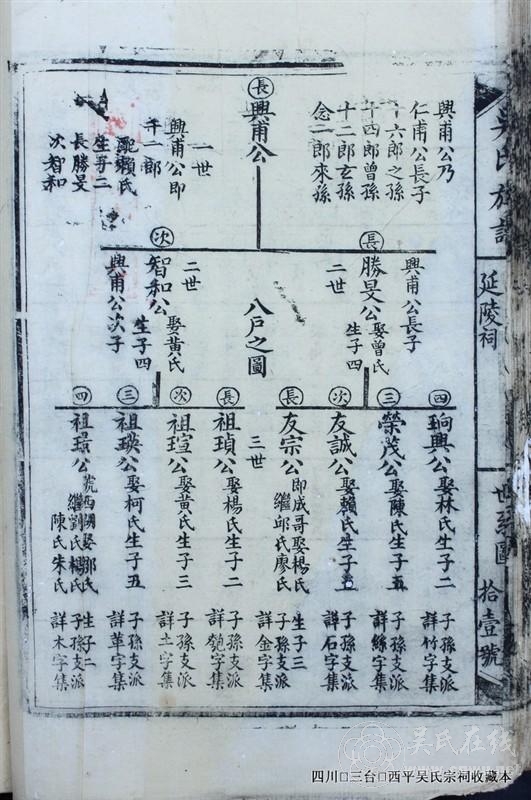 吳氏族譜
延陵祠
世系圖
拾壹號
長
興甫公
興甫公乃
仁甫公長子
十六郎之孫
十四郎曾孫
十二郎玄孫
念一郎來孫
一世
興甫公即
千一郎
配賴氏
生子二
長勝旻
次智和
長
勝旻公
娶曾氏
生子四
興甫公長子
二世
八戶之圖
次
智和公
娶黃氏
生子四
二世
興甫公次子
四
珦興公
娶林氏生子二
子孫支派
詳竹字集
三
榮茂公
娶陳氏生子五
子孫支派
詳絲字集
次
友誠公
娶賴氏生子五
子孫支派
詳石字集
長
友宗公
即成哥娶楊氏
繼邱氏廖氏
生子三
子孫支派
詳金字集
三世
長
祖瑱公
娶楊氏生子二
子孫支派
詳匏字集
次
祖瑄公
娶黃氏生子三
子孫支派
詳土字集
三
祖瑛公
娶柯氏生子五
子孫支派
詳革字集
四
祖璟公
號西湖娶鄒氏
繼劉氏楊氏
陳氏朱氏
生子二
子孫支派
詳木字集
吳氏在线
四川□三台□西平吴氏宗祠收藏本